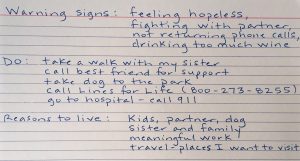 Warning signs: feeling hopeless,
fighting with partner,
not returning phone calls,
drinking too much wine
DO: take a walk with my sister
call best friend for support
take dog to the park
call Lines for Life (800-273-8255)
go to hospital - call 911
Reasons to live: Kids, partner, dog
sister and family
meaningful work
travel - places I want to visit